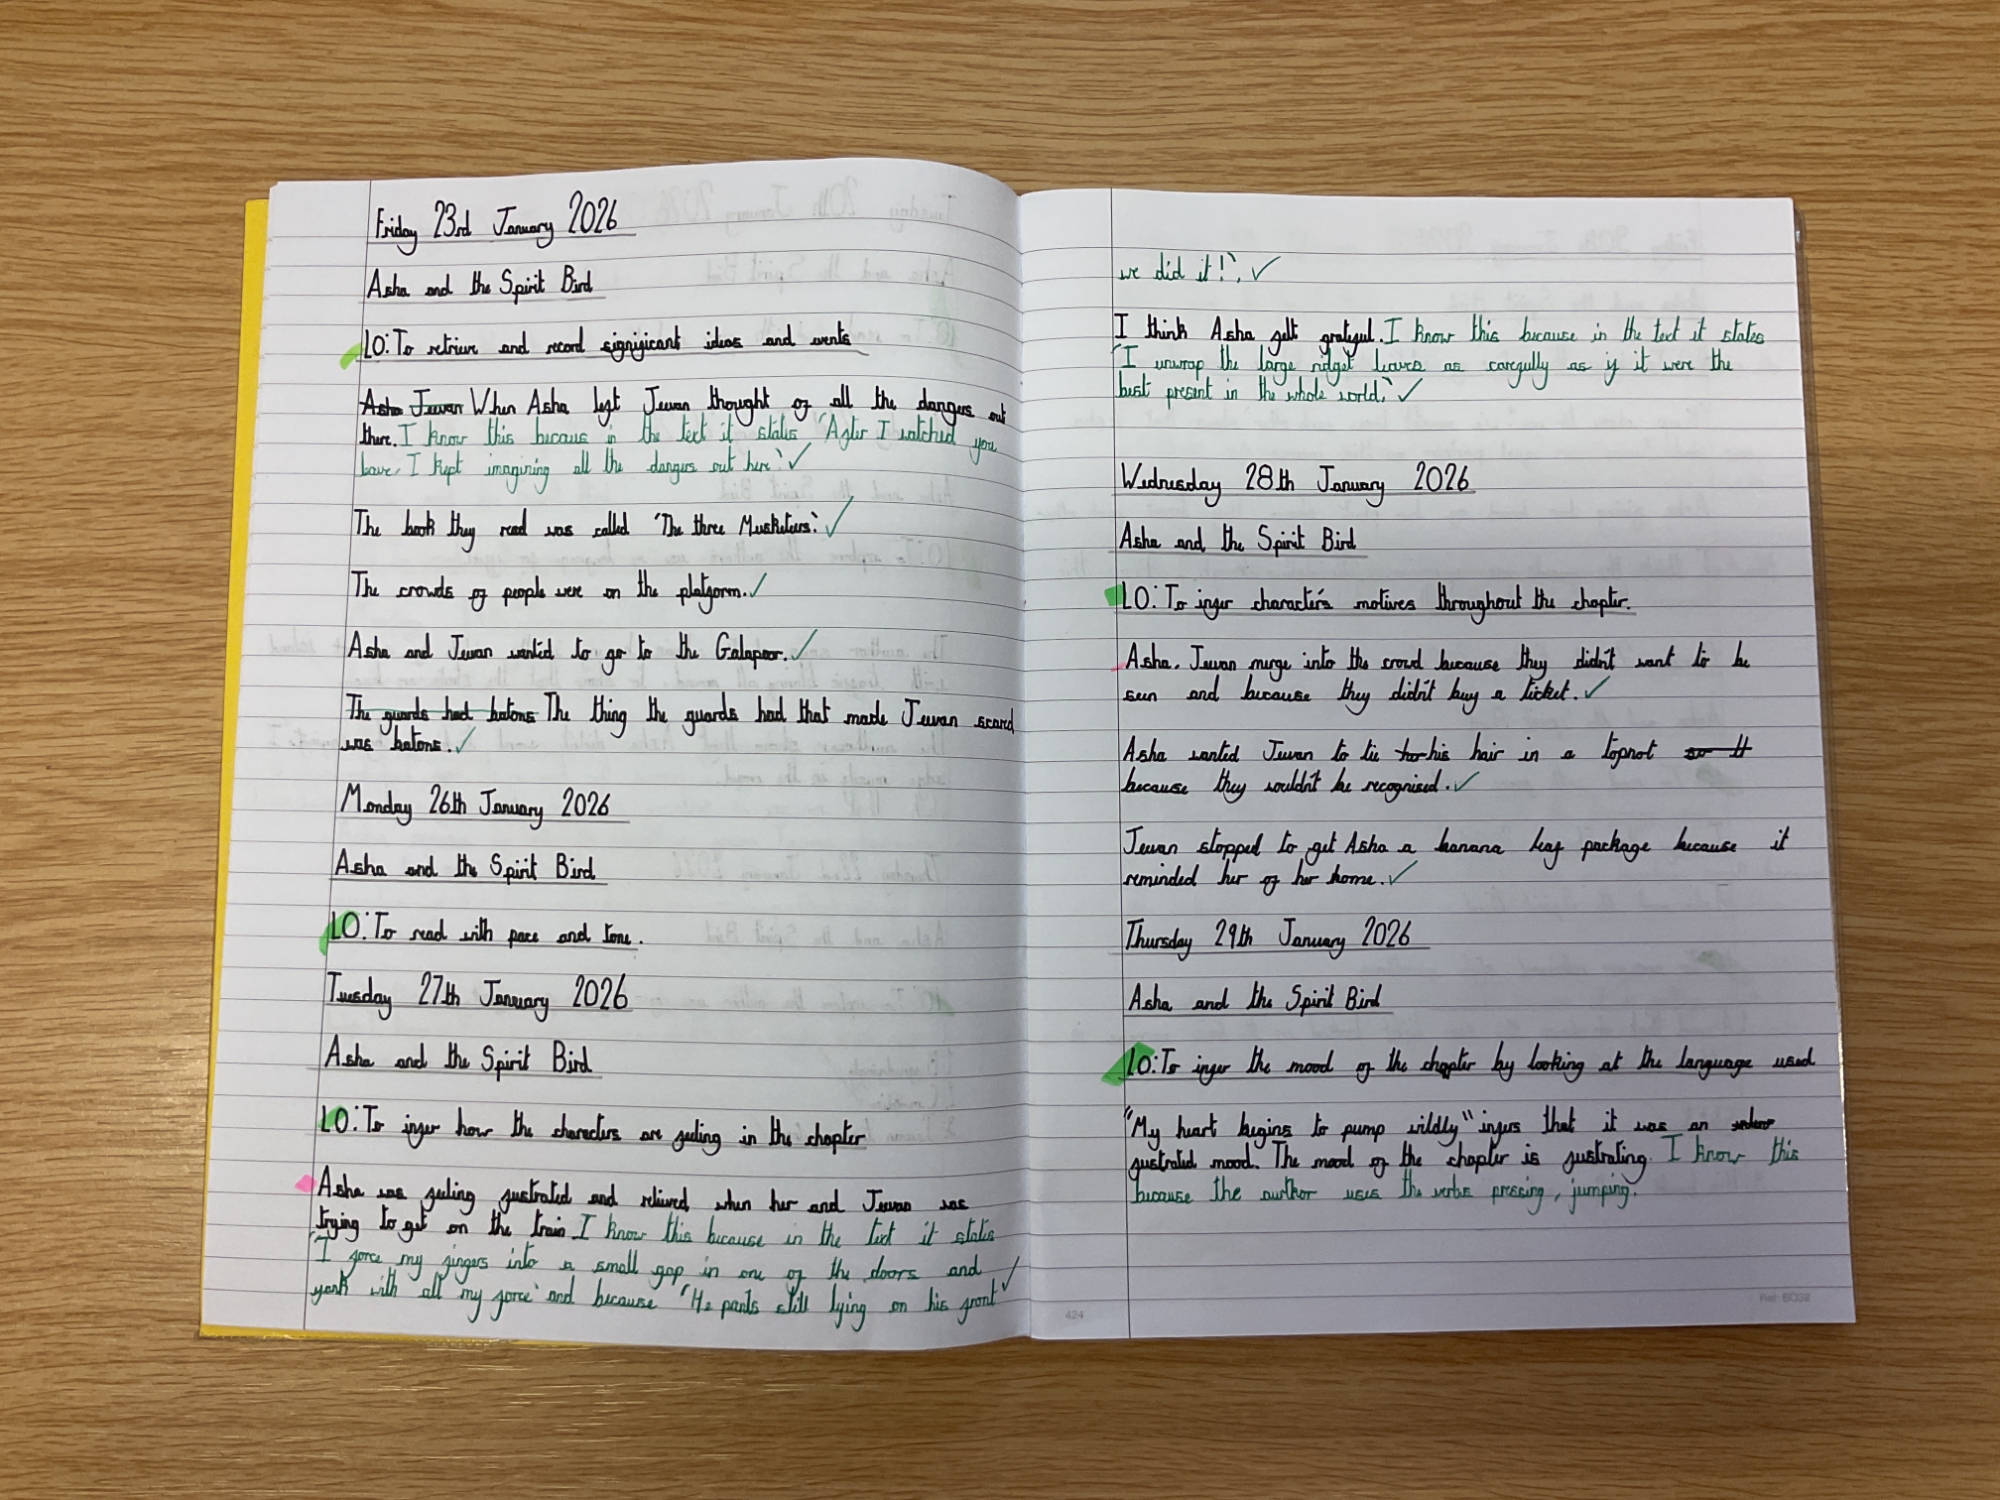 Friday 23rd January 2026
Asha and the Spirit Bird
LO: To retrieve and record significant ideas and events
Asha Jeevan When Asha left Jeevan thought of all the dangers out
there. I know this becaus in the text it states 'After I watched you
leave, I kept imagining all the dangers out here.' ✓
The book they read was called 'The three Musketeers.' ✓
The crowds of people were on the platform. ✓
Asha and Jeevan wanted to go to the Galapoor. ✓
The guards had batons The thing the guards had that made Jeevan scared
was batons. ✓
Monday 26th January 2026
Asha and the Spirit Bird
LO: To read with pace and tone.
Tuesday 27th January 2026
Asha and the Spirit Bird
LO: To infer how the characters are feeling in the chapter
Asha was feeling fustrated and relieved when her and Jeevan was
trying to get on the train. I know this because in the text it states
'I force my fingers into a small gap in one of the doors and
yank with all my force' and because 'He pants still lying on his front ✓
we did it!'. ✓
I think Asha felt grateful. I know this because in the text it states
'I unwrap the large ridget leaves as carefully as if it were the
best present in the whole world.' ✓
Wednesday 28th January 2026
Asha and the Spirit Bird
LO: To infer character's motives throughout the chapter.
Asha. Jeevan merge into the crowd because they didn't want to be
seen and because they didn't buy a ticket. ✓
Asha wanted Jeevan to tie his hair in a topnot so it
because they wouldn't be recognised. ✓
Jeevan stopped to get Asha a banana leaf package because it
reminded her of her home. ✓
Thursday 29th January 2026
Asha and the Spirit Bird
LO: To infer the mood of the chapter by looking at the language used
"My heart begins to pump wildly" infers that it was an
fustrated mood. The mood of the chapter is fustrating. I know this
because the author uses the verbs pressing, jumping.
424